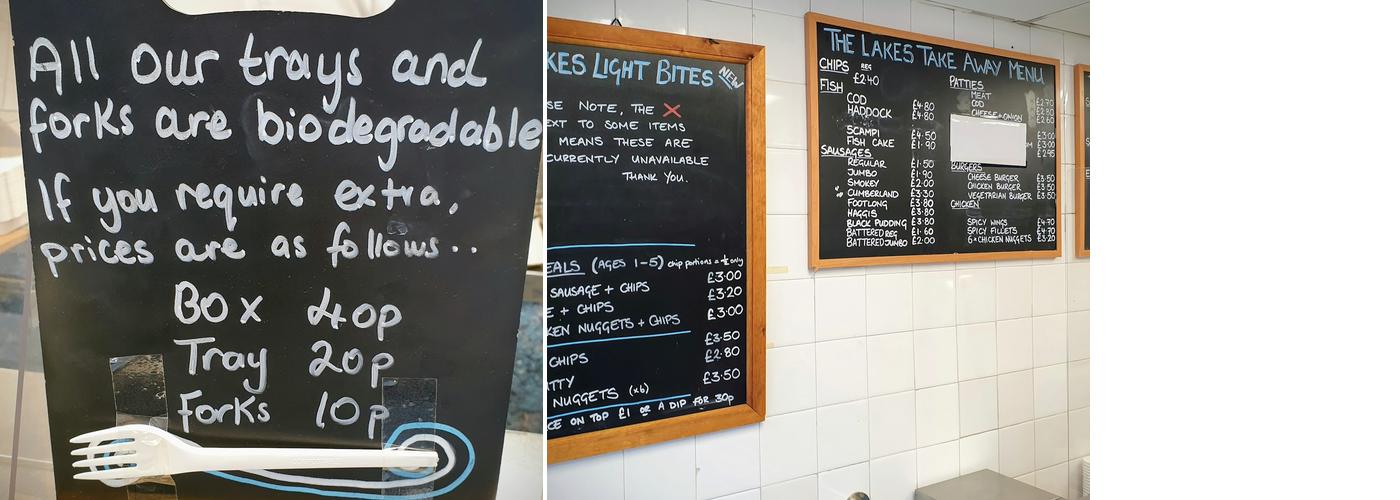 All our trays and
forks are biodegradable
If you require extra,
prices are as follows..
Box 40p
Tray 20p
Forks 10p
KES LIGHT BITES NEW
SE NOTE, THE X
EXT TO SOME ITEMS
MEANS THESE ARE
CURRENTLY UNAVAILABLE
THANK YOU.
EALS (AGES 1-5) chip portions = 1/2 only
SAUSAGE + CHIPS £3.00
E + CHIPS £3.20
KEN NUGGETS + CHIPS £3.00
CHIPS £3.50
TTY £2.80
NUGGETS (x6) £3.50
CE ON TOP £1 OR A DIP FOR 30p
THE LAKES TAKE AWAY MENU
CHIPS REG
£2.40
FISH
COD £4.80
HADDOCK £4.80
SCAMPI £4.50
FISH CAKE £1.90
SAUSAGES
REGULAR £1.50
JUMBO £1.90
SMOKEY £2.00
CUMBERLAND £3.30
FOOTLONG £3.80
HAGGIS £3.80
BLACK PUDDING £3.80
BATTERED REG £1.60
BATTERED JUMBO £2.00
PATTIES
MEAT £2.70
COD £2.80
CHEESE+ONION £2.60
£3.00
£3.00
£2.95
BURGERS
CHEESE BURGER £3.50
CHICKEN BURGER £3.50
VEGETARIAN BURGER £3.50
CHICKEN
SPICY WINGS £4.70
SPICY FILLETS £4.70
6x CHICKEN NUGGETS £3.20